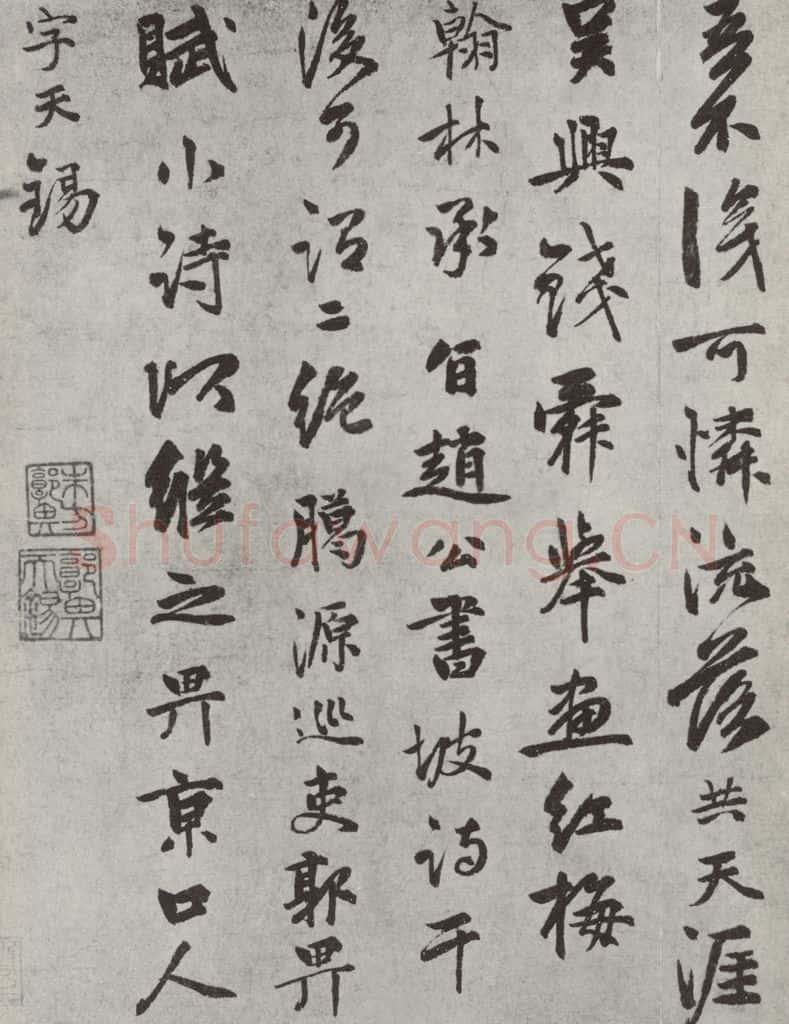 不淺可憐流落共天涯
吳興錢舜舉畫紅梅
翰林承旨趙公書坡詩于
後可謂二絕源巡吏郭畀
賦小詩以繼之畀京口人
字天錫
朱方郭畀
郭畀天錫
Shufawang.CN